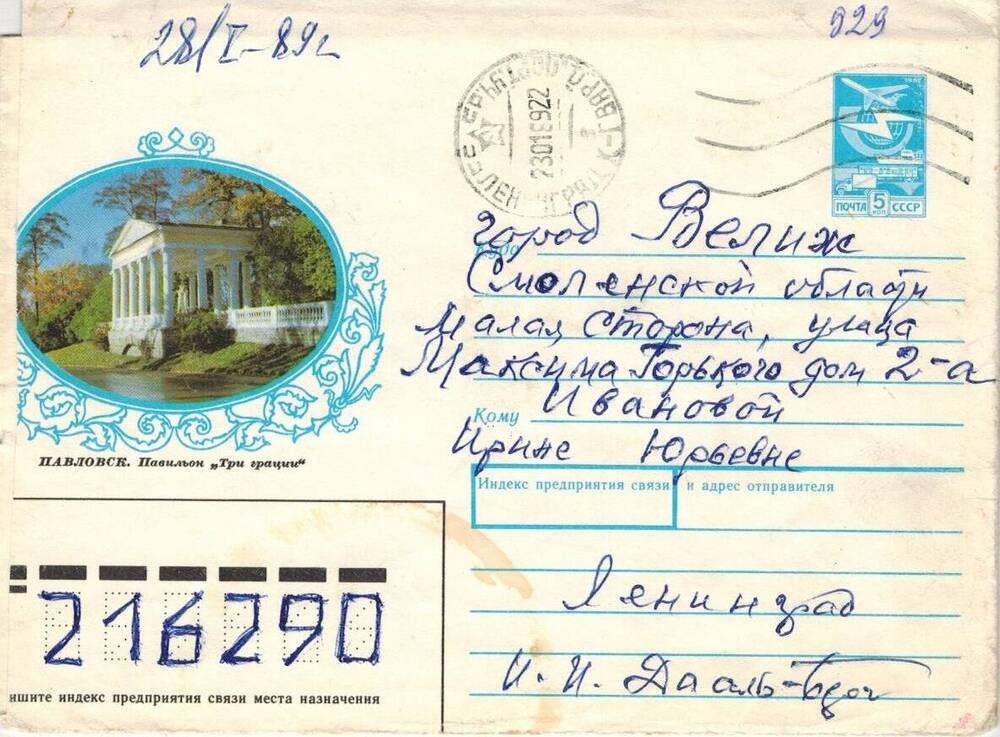 28/I-89г
929
23018922
1982
ПОЧТА 5 КОП СССР
Куда
город Велиж
Смоленской области
Малая Сторона, улица
Максима Горького дом 2-а
Кому Ивановой
Ирине Юрьевне
ПАВЛОВСК. Павильон „Три грации“
Индекс предприятия связи и адрес отправителя
Ленинград
И. И.
216290
ишите индекс предприятия связи места назначения